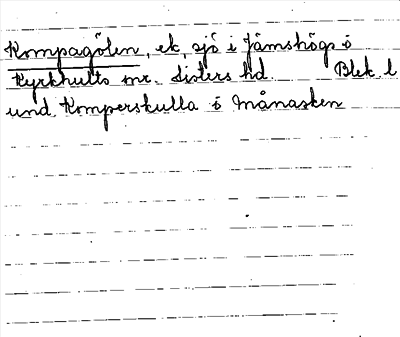 Kompagölen, ek, sjö i Jämshögs o
Kyrkhults snr. Listers hd. Blek. l
und. Komperskulla o Månasken